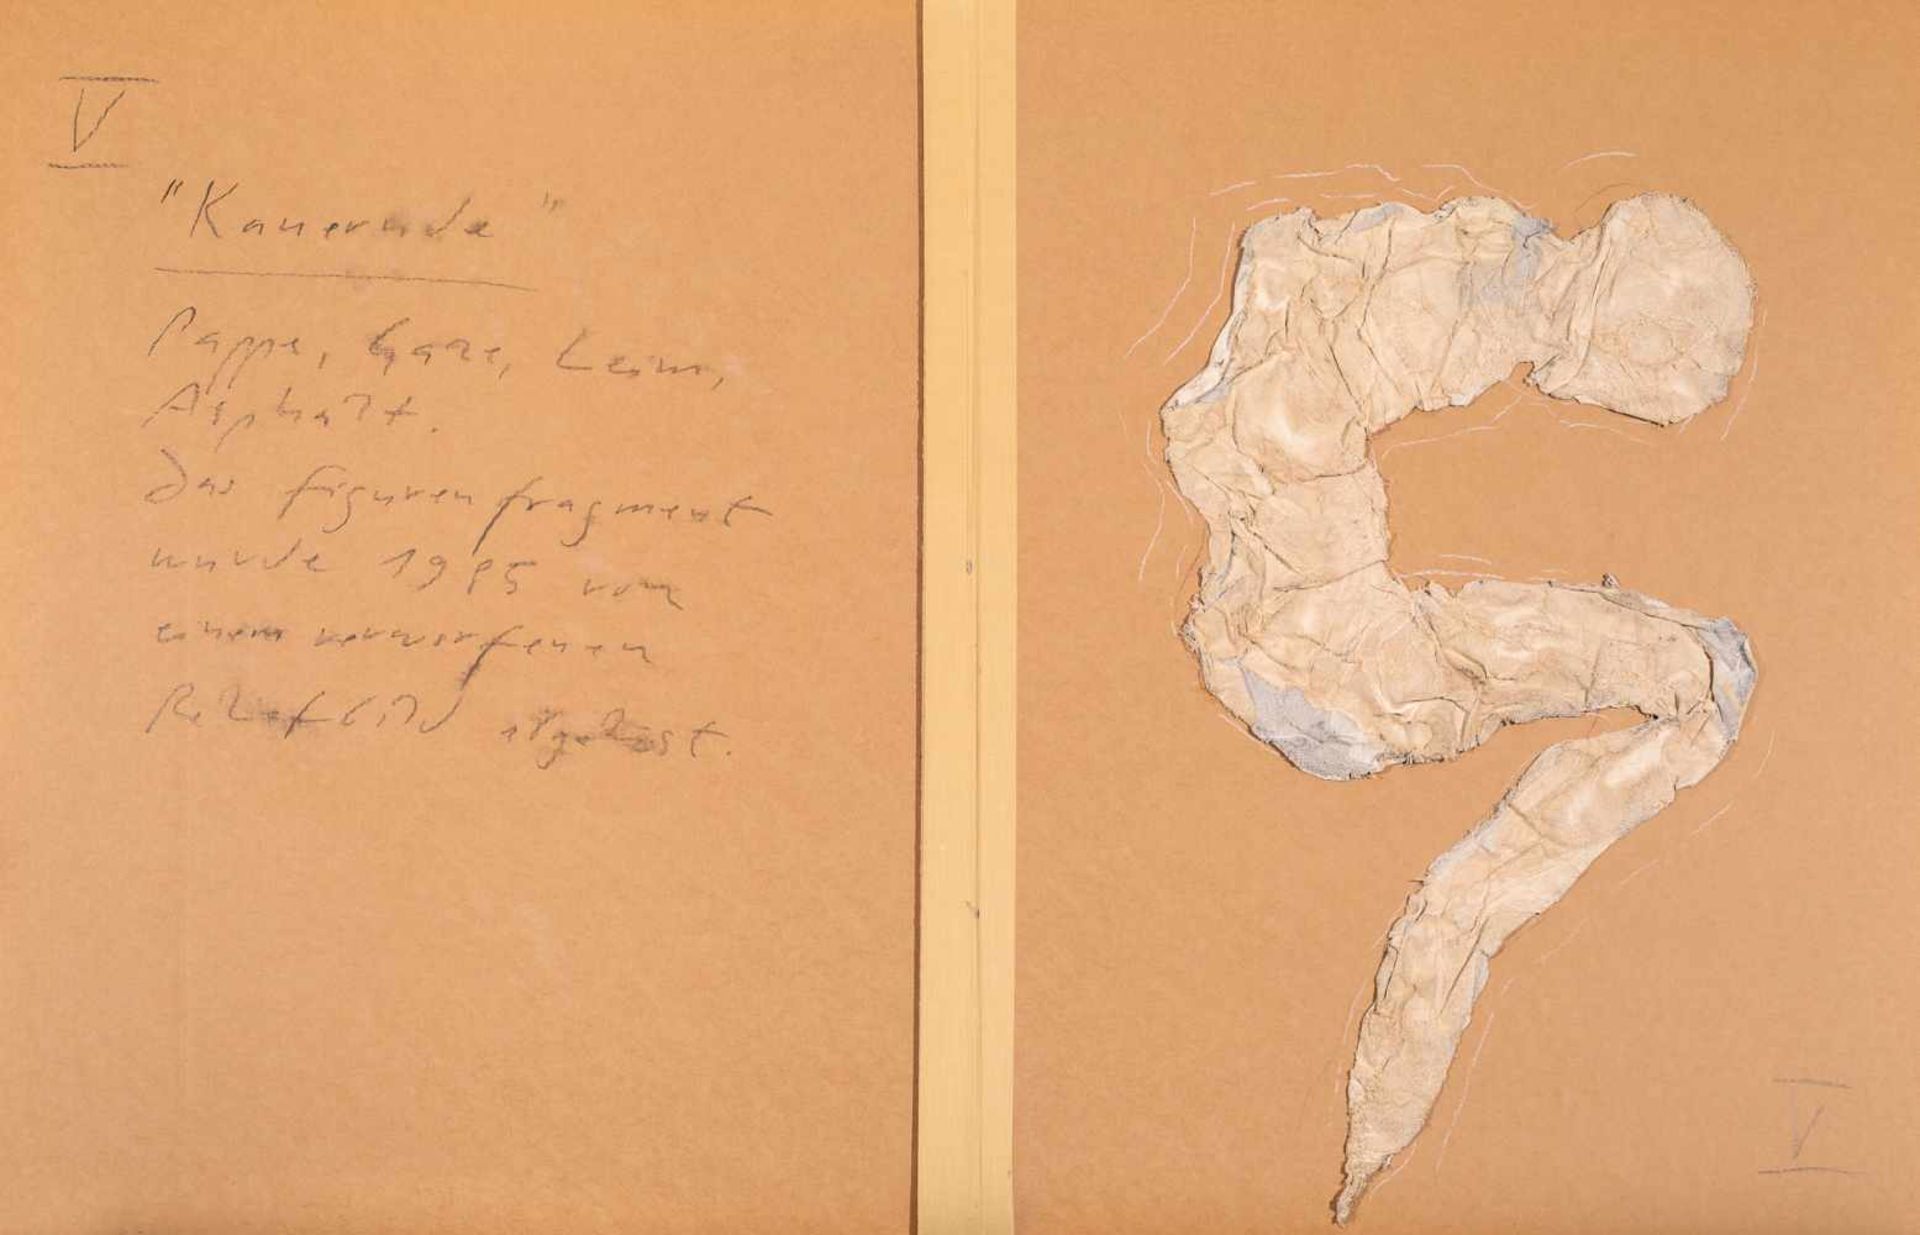 V
"Kauernde"
Pappe, Gaze, Leim,
Asphalt.
Das Figurenfragment
wurde 1985 von
einem verworfenen
Reliefbild abgelöst.
V